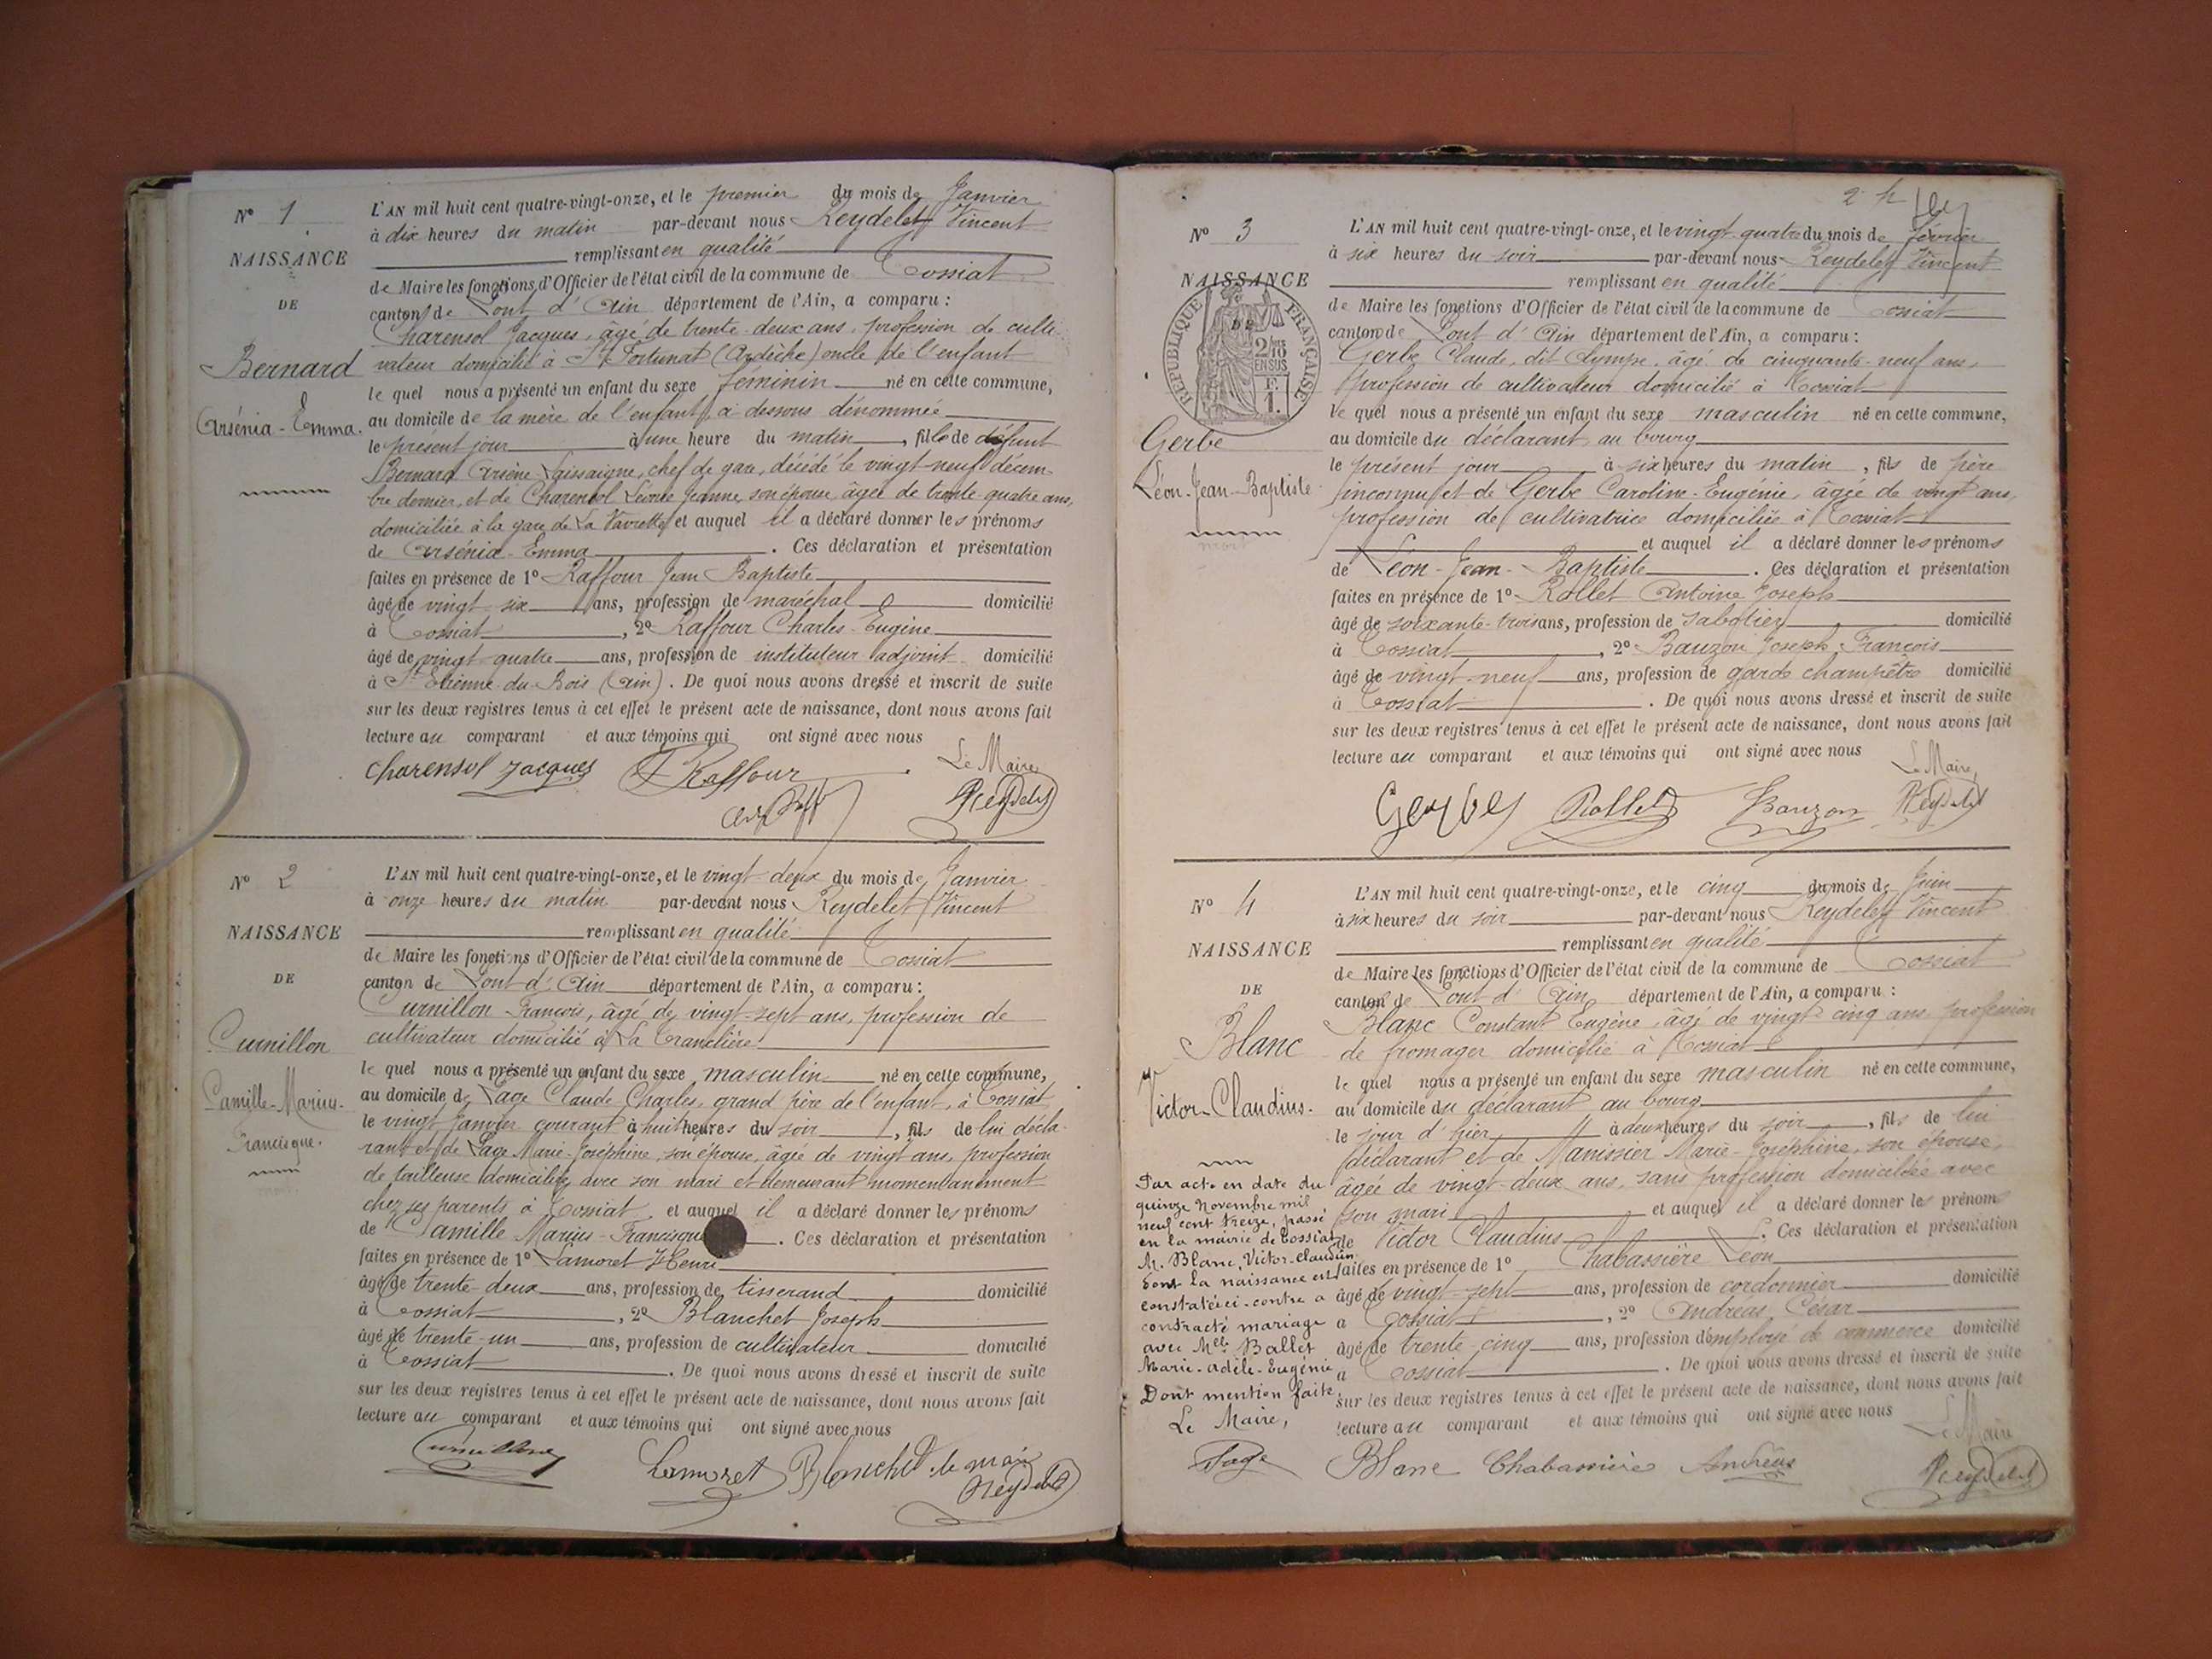 N° 1
NAISSANCE
DE
Bernard
Arsénia-Emma.
L'AN mil huit cent quatre-vingt-onze, et le premier du mois de Janvier
à dix heures du matin par-devant nous Reydelet Vincent
remplissant en qualité
de Maire les fonctions d'Officier de l'état civil de la commune de Tossiat
canton de Pont d'Ain département de l'Ain, a comparu :
Charensol Jacques, âgé de trente-deux ans, profession de culti-
vateur domicilié à St Fortunat (Ardèche) oncle de l'enfant
le quel nous a présenté un enfant du sexe féminin né en cette commune,
au domicile de la mère de l'enfant ci dessous dénommée
le présent jour à une heure du matin, fille de défunt
Bernard Arsène Laissaigne, chef de gare, décédé le vingt-neuf décem-
bre dernier, et de Charensol Léonie Jeanne, son épouse, âgée de trente quatre ans,
domiciliée à la gare de La Vavrette et auquel il a déclaré donner les prénoms
de Arsénia-Emma. Ces déclaration et présentation
faites en présence de 1° Raffour Jean Baptiste
âgé de vingt-six ans, profession de maréchal domicilié
à Tossiat, 2° Raffour Charles-Eugène
âgé de vingt quatre ans, profession de instituteur adjoint domicilié
à St Etienne-du-Bois (Ain). De quoi nous avons dressé et inscrit de suite
sur les deux registres tenus à cet effet le présent acte de naissance, dont nous avons fait
lecture au comparant et aux témoins qui ont signé avec nous
Le Maire
Charensol Jacques Raffour Reydelet
N° 2
NAISSANCE
DE
Curnillon
Camille-Marius-
Francisque.
L'AN mil huit cent quatre-vingt-onze, et le vingt-deux du mois de Janvier
à onze heures du matin par-devant nous Reydelet Vincent
remplissant en qualité
de Maire les fonctions d'Officier de l'état civil de la commune de Tossiat
canton de Pont d'Ain département de l'Ain, a comparu :
Curnillon François, âgé de vingt-sept ans, profession de
cultivateur domicilié à La Tranclière
le quel nous a présenté un enfant du sexe masculin né en cette commune,
au domicile de Page Claude Charles, grand père de l'enfant, à Tossiat
le vingt Janvier courant à huit heures du soir, fils de lui décla-
rant et de Page Marie-Joséphine, son épouse, âgée de vingt ans, profession
de tailleuse domiciliée avec son mari et demeurant momentanément
chez ses parents à Tossiat et auquel il a déclaré donner les prénoms
de Camille Marius-Francisque. Ces déclaration et présentation
faites en présence de 1° Lamoret Henri
âgé de trente-deux ans, profession de tisserand domicilié
à Tossiat, 2° Blanchet Joseph
âgé de trente-un ans, profession de cultivateur domicilié
à Tossiat. De quoi nous avons dressé et inscrit de suite
sur les deux registres tenus à cet effet le présent acte de naissance, dont nous avons fait
lecture au comparant et aux témoins qui ont signé avec nous
Curnillon Lamoret Blanchet le maire
Reydelet
N° 3
NAISSANCE
DE
RÉPUBLIQUE FRANÇAISE
2/10
EN SUS
F.
1.
Gerbe
Léon-Jean-Baptiste
mort
L'AN mil huit cent quatre-vingt-onze, et le vingt-quatre du mois de février
à six heures du soir par-devant nous Reydelet Vincent
remplissant en qualité
de Maire les fonctions d'Officier de l'état civil de la commune de Tossiat
canton de Pont d'Ain département de l'Ain, a comparu :
Gerbe Claude, dit Olympe, âgé de cinquante-neuf ans,
profession de cultivateur domicilié à Tossiat
le quel nous a présenté un enfant du sexe masculin né en cette commune,
au domicile du déclarant au bourg
le présent jour à six heures du matin, fils de père
inconnu et de Gerbe Caroline-Eugénie, âgée de vingt ans,
profession de cultivatrice domiciliée à Tossiat
et auquel il a déclaré donner les prénoms
de Léon-Jean-Baptiste. Ces déclaration et présentation
faites en présence de 1° Rollet Antoine Joseph
âgé de soixante-trois ans, profession de sabotier domicilié
à Tossiat, 2° Bauzon Joseph François
âgé de vingt-neuf ans, profession de garde champêtre domicilié
à Tossiat. De quoi nous avons dressé et inscrit de suite
sur les deux registres tenus à cet effet le présent acte de naissance, dont nous avons fait
lecture au comparant et aux témoins qui ont signé avec nous
Le Maire,
Gerbe Rollet Bauzon Reydelet
N° 4
NAISSANCE
DE
Blanc
Victor-Claudius.
Par acte en date du
quinze Novembre mil
neuf cent treize, passé
en la mairie de Tossiat
Mr. Blanc, Victor-Claudius
dont la naissance est
constatée ci-contre a
contracté mariage
avec Melle Ballet
Marie-Adèle-Eugénie
Dont mention faite.
Le Maire,
Page
L'AN mil huit cent quatre-vingt-onze, et le cinq du mois de Juin
à six heures du soir par-devant nous Reydelet Vincent
remplissant en qualité
de Maire les fonctions d'Officier de l'état civil de la commune de Tossiat
canton de Pont d'Ain département de l'Ain, a comparu :
Blanc Constant Eugène, âgé de vingt-cinq ans profession
de fromager domicilié à Tossiat
le quel nous a présenté un enfant du sexe masculin né en cette commune,
au domicile du déclarant au bourg
le jour d'hier à deux heures du soir, fils de lui
déclarant et de Manissier Marie-Joséphine, son épouse,
âgée de vingt-deux ans, sans profession domiciliée avec
son mari et auquel il a déclaré donner les prénoms
de Victor Claudius. Ces déclaration et présentation
faites en présence de 1° Chabassière Léon
âgé de vingt-sept ans, profession de cordonnier domicilié
à Tossiat, 2° Andréas César
âgé de trente-cinq ans, profession d'employé de commerce domicilié
à Tossiat. De quoi nous avons dressé et inscrit de suite
sur les deux registres tenus à cet effet le présent acte de naissance, dont nous avons fait
lecture au comparant et aux témoins qui ont signé avec nous
Le Maire
Blanc Chabassière Andréas Reydelet